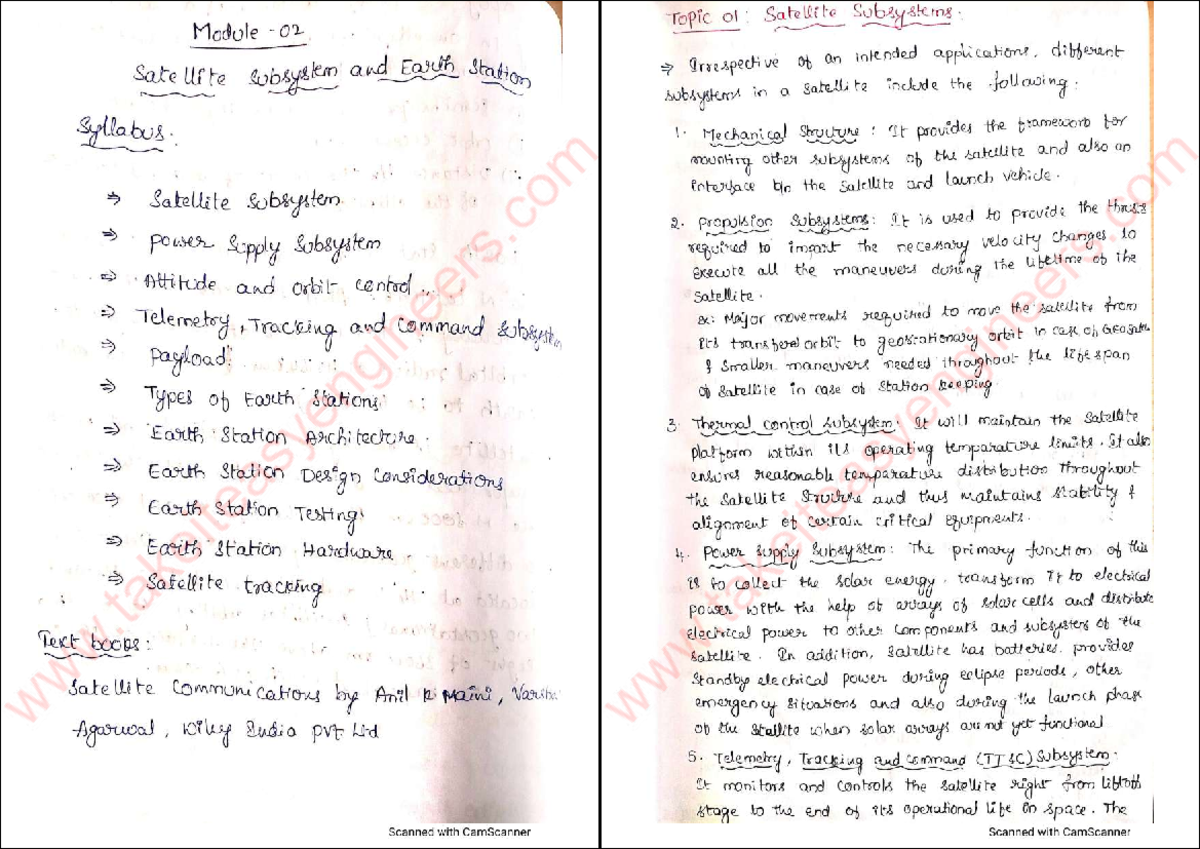 Module - 02
Satellite Subsystem and Earth Station
Syllabus:
⇒ Satellite Subsystem
⇒ Power Supply Subsystem
⇒ Attitude and Orbit control
⇒ Telemetry, Tracking and Command Subsystem
⇒ Payload
⇒ Types of Earth Stations
⇒ Earth Station Architecture
⇒ Earth Station Design Considerations
⇒ Earth Station Testing
⇒ Earth Station Hardware
⇒ Satellite tracking
Text books:
Satellite Communications by Anil K Maini, Varsha
Agarwal, Wiley India Pvt Ltd
www.takeiteasyengineers.com
Scanned with CamScanner
Topic 01: Satellite Subsystems.
⇒ Irrespective of an intended applications, different
subsystems in a satellite include the following:
1. Mechanical Structure: It provides the framework for
mounting other subsystems of the satellite and also an
interface b/n the satellite and launch vehicle.
2. Propulsion Subsystems: It is used to provide the thrust
required to impart the necessary velocity changes to
execute all the maneuvers during the lifetime of the
Satellite.
ex: Major movements required to move the satellite from
its transfer orbit to geostationary orbit in case of
& smaller maneuvers needed throughout the lifespan
of satellite in case of station keeping.
3. Thermal control subsystem: It will maintain the satellite
platform within its operating temparature limits. It also
ensures reasonable temparature distribution throughout
the satellite structure and thus maintains stability &
alignment of certain critical equipments.
4. Power Supply Subsystem: The primary function of this
is to collect the solar energy, transform it to electrical
power with the help of arrays of solar cells and distribute
electrical power to other components and subsystem of the
satellite. In addition, satellite has batteries, provides
standby electrical power during eclipse periods, other
emergency situations and also during the launch phase
of the Stallite when solar arrays are not yet functional
5. Telemetry, Tracking and command (TT&C) Subsystem:
It monitors and controls the satellite right from liftoff
stage to the end of its operational life in space. The
www.takeiteasyengineers.com
Scanned with CamScanner